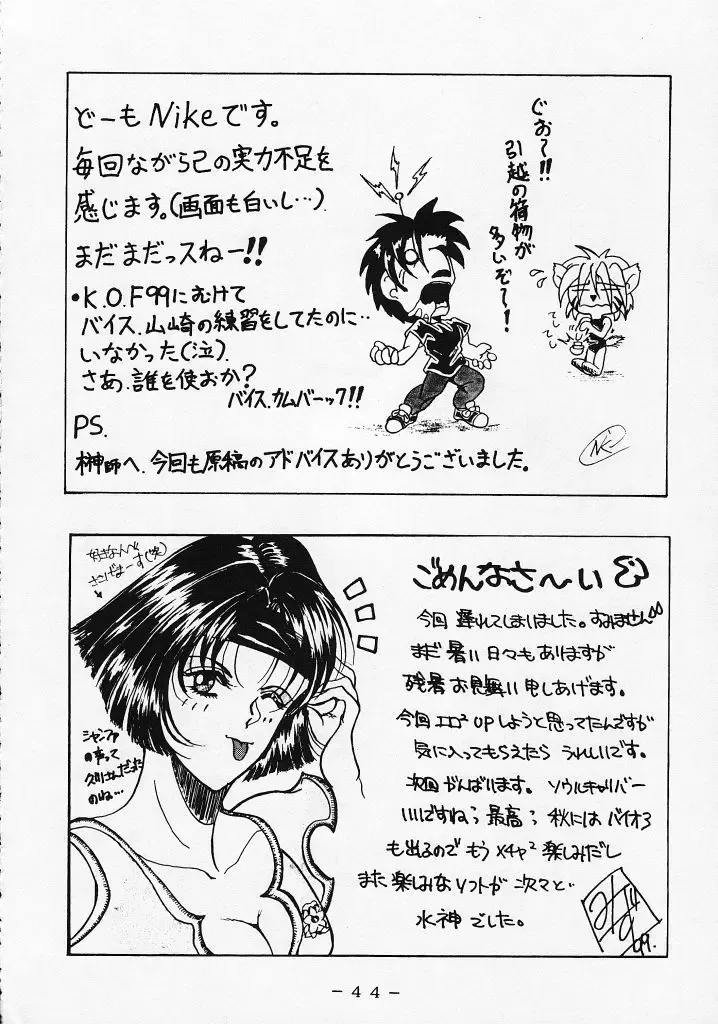 どーもNikeです。
毎回ながら己の実力不足を
感じます。(画面も白いし…)
まだまだっスねー!!
•K.O.F99にむけて
バイス、山崎の練習をしてたのに…
いなかった(泣).
さあ、誰を使おか?
バイス、カムバーック!!
PS.
榊師へ、今回も原稿のアドバイスありがとうございました。
ぐお〜!!
引越の荷物が
多いぞ〜!
てし
てし
好きなんで
ささげまーす(笑)
シャンファ
の声って
久川さんだった
のね…
ごめんなさ〜い
今回 遅れてしまいました。すみません
まだ 暑い 日々も ありますが
残暑 お見舞い 申しあげます。
今回 エロ² UPしようと思ってたんですが
気に入ってもらえたら うれしいです。
次回 がんばります。 ソウルキャリバー
いいですね〜 最高〜 秋には バイオ3
も出るので もう メチャ² 楽しみだし
また 楽しみな ソフトが 次々と
水神 でした。
みずの
99.
- 44 -